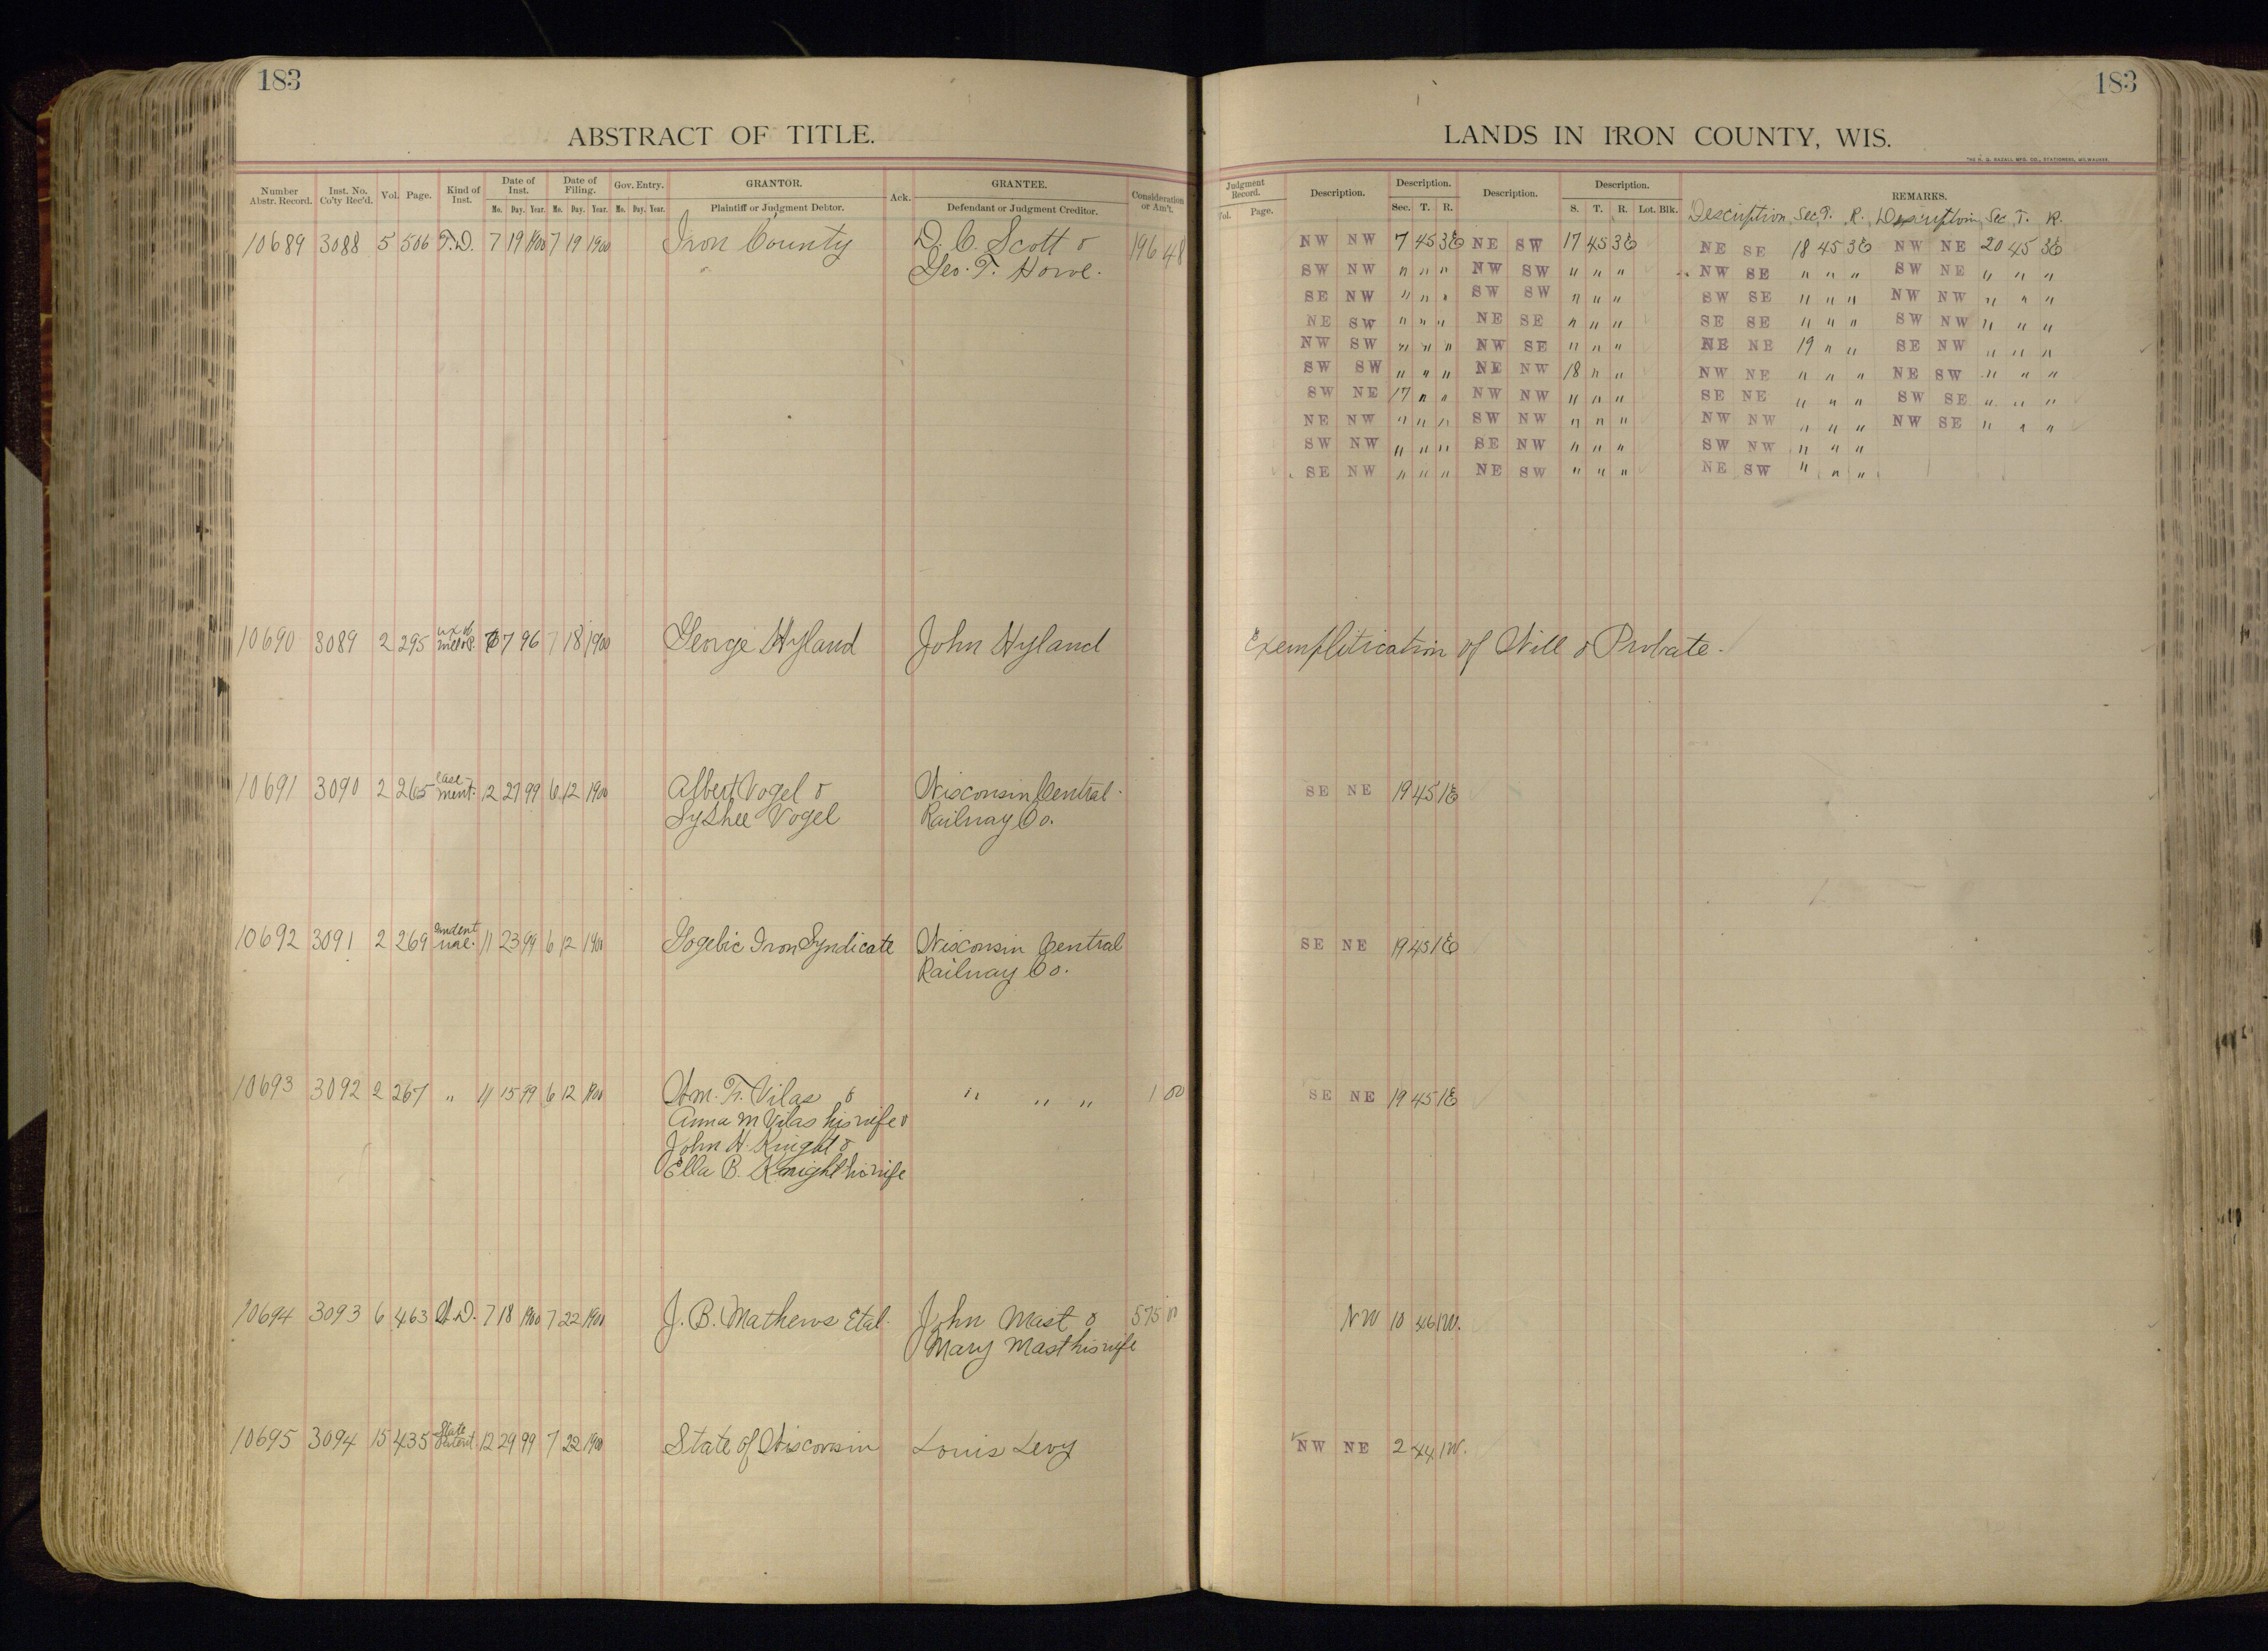 183
183
ABSTRACT OF TITLE.
LANDS IN IRON COUNTY, WIS.
THE H. G. RAZALL MFG. CO., STATIONERS, MILWAUKEE.
Number Abstr. Record. Inst. No. Co'ty Rec'd. Vol. Page. Kind of Inst. Date of Inst. Mo. Day. Year. Date of Filing. Mo. Day. Year. Gov. Entry. Mo. Day. Year. GRANTOR. Plaintiff or Judgment Debtor. Ack. GRANTEE. Defendant or Judgment Creditor. Consideration or Am't.
Judgment Record. Vol. Page. Description. Description. Sec. T. R. Description. Description. S. T. R. Lot. Blk. REMARKS.
Description Sec T. R. Description Sec T. R.
10689 3088 5 506 T.D. 7 19 1900 7 19 1900 Iron County D. C. Scott & 196 48
Geo. T. Howe.
NW NW 7 45 3E NE SW 17 45 3E NE SE 18 45 3E NW NE 20 45 3E
SW NW " " " NW SW " " " NW SE " " " SW NE " " "
SE NW " " " SW SW " " " SW SE " " " NW NW " " "
NE SW " " " NE SE " " " SE SE " " " SW NW " " "
NW SW " " " NW SE " " " NE NE 19 " " SE NW " " "
SW SW " " " NE NW 18 " " NW NE " " " NE SW " " "
SW NE 17 " " NW NW " " " SE NE " " " SW SE " " "
NE NW " " " SW NW " " " NW NW " " " NW SE " " "
SW NW " " " SE NW " " " SW NW " " "
SE NW " " " NE SW " " " NE SW " " "
10690 3089 2 295 7 96 7 18 1900 George Hyland John Hyland Exemplification of Will & Probate.
10691 3090 2 265 Ease-ment. 12 27 99 6 12 1900 Albert Vogel & Wisconsin Central SE NE 19 45 1E
Vogel Railway Co.
10692 3091 2 269 Indent ure. 11 23 99 6 12 1900 Gogebic Iron Syndicate Wisconsin Central SE NE 19 45 1E
Railway Co.
10693 3092 2 267 " 11 15 99 6 12 1900 Wm. F. Vilas & " " " 1 00 SE NE 19 45 1E
Anna M Vilas his wife &
John H. Knight &
Ella B. Knight his wife
10694 3093 6 463 W.D. 7 18 1900 7 22 1900 J. B. Mathews Etal. John Mast & 575 00 NW 10 46 1W.
Mary Mast his wife
10695 3094 15 435 State Patent 12 29 99 7 22 1900 State of Wisconsin Louis Levy NW NE 2 44 1W.